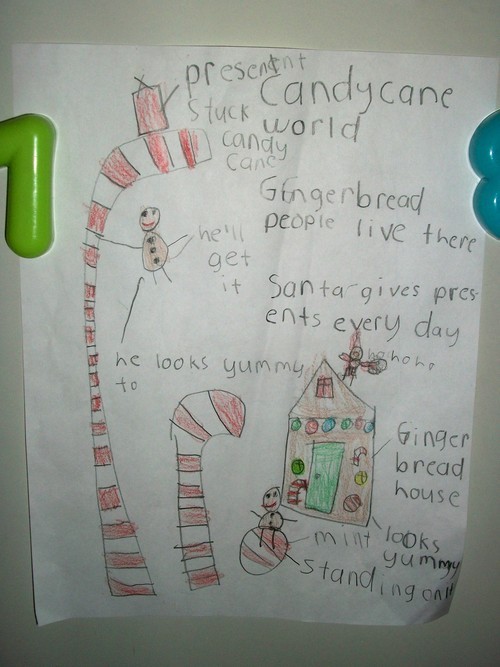 presentnt
stuck
candy
cane
Candycane
world
Gingerbread
people live there
he'll
get
it
Santa gives pres
ents every day
hohoho
he looks yummy
to
Ginger
bread
house
looks
yummy
mint
standing on it